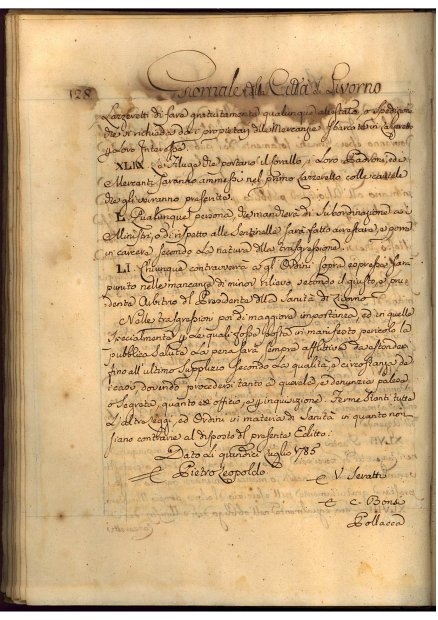 128 Giornale della Città di Livorno
Lazzeretti di fare gratuitamente qualunque attestato, o spedizione
che sia richiesta da i propietari delle Mercanzie sbarcate in
p loro Interesse.
XLIX. Le che portano il corallo, e Loro Padroni, ed
Mercanti saranno ammessi nel primo Lazzeretto colle cautele
che gli verranno prescritte.
L. Qualunque persona, che mancherà di Subordinazione a i
Ministri, o di rispetto alle Sentinelle sarà fatto arrestare, e porre
in carcere secondo la natura della trasgressione.
LI. Chiunque contravverrà a gl' Ordini sopra espressi sarà
punito nelle mancanze di minor rilievo secondo il giusto, e pru-
dente Arbitrio del Presidente della Sanità di Livorno
Nelle trasgressioni poi di maggiore importanza, ed in quelle
specialmente p le quali fosse posta in manifesto pericolo la
pubblica Salute La pena sarà sempre afflittiva da estendersi
fino all' ultimo Supplizio secondo La qualità, e circostanze de
i casi, dovendo procedersi tanto a querela, e denunzia palese
o segreta, quanto ex officio, e p inquisizione: Ferme stanti tutte
l' altre Leggi, ed Ordini in materia di Sanità in quanto non
siano contrarie al disposto del presente Editto:
Dato li quindici Luglio 1785
Pietro Leopoldo
V. Seratti
C. Bons
Pollacca